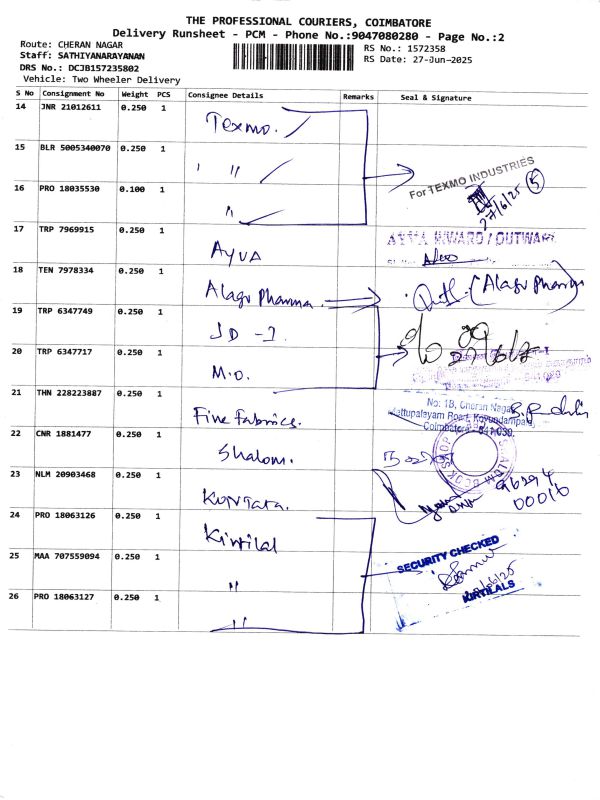 THE PROFESSIONAL COURIERS, COIMBATORE
Delivery Runsheet - PCM - Phone No.:9047080280 - Page No.:2
Route: CHERAN NAGAR
Staff: SATHIYANARAYANAN
DRS No.: DCJB157235802
Vehicle: Two Wheeler Delivery
RS No.: 1572358
RS Date: 27-Jun-2025
S No Consignment No Weight PCS Consignee Details Remarks Seal & Signature
14 JNR 21012611 0.250 1 Texmo.
15 BLR 5005340070 0.250 1 ' "
For TEXMO INDUSTRIES
27/6/25 5
16 PRO 18035530 0.100 1 "
17 TRP 7969915 0.250 1 AYVA
INWARD / OUTWARD
18 TEN 7978334 0.250 1 Alagu Pharma (Alagu Pharma
19 TRP 6347749 0.250 1 JD - I
20 TRP 6347717 0.250 1 M.D.
21 THN 228223887 0.250 1 Fine Fabrics.
No: 1B, Cheran Nagar
Mettupalayam Road, Kovundampalayam
Coimbatore - 641 030.
22 CNR 1881477 0.250 1 Shalom.
23 NLM 20903468 0.250 1
96294
00016
24 PRO 18063126 0.250 1 Kirtilal
25 MAA 707559094 0.250 1 "
SECURITY CHECKED
KIRTILALS
26 PRO 18063127 0.250 1 "